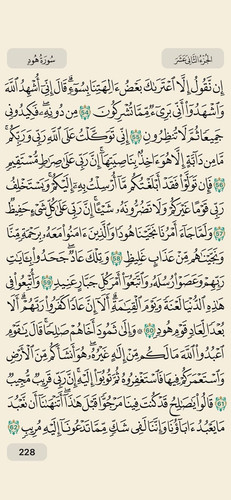 الجزء الثاني عشر
سورة هود
إِن نَّقُولُ إِلَّا اعْتَرَاكَ بَعْضُ آلِهَتِنَا بِسُوءٍ ۗ قَالَ إِنِّي أُشْهِدُ اللَّهَ
وَاشْهَدُوا أَنِّي بَرِيءٌ مِّمَّا تُشْرِكُونَ 54 مِن دُونِهِ ۖ فَكِيدُونِي
جَمِيعًا ثُمَّ لَا تُنظِرُونِ 55 إِنِّي تَوَكَّلْتُ عَلَى اللَّهِ رَبِّي وَرَبِّكُم ۚ
مَّا مِن دَابَّةٍ إِلَّا هُوَ آخِذٌ بِنَاصِيَتِهَا ۚ إِنَّ رَبِّي عَلَىٰ صِرَاطٍ مُّسْتَقِيمٍ
56 فَإِن تَوَلَّوْا فَقَدْ أَبْلَغْتُكُم مَّا أُرْسِلْتُ بِهِ إِلَيْكُمْ ۚ وَيَسْتَخْلِفُ
رَبِّي قَوْمًا غَيْرَكُمْ وَلَا تَضُرُّونَهُ شَيْئًا ۚ إِنَّ رَبِّي عَلَىٰ كُلِّ شَيْءٍ حَفِيظٌ
57 وَلَمَّا جَاءَ أَمْرُنَا نَجَّيْنَا هُودًا وَالَّذِينَ آمَنُوا مَعَهُ بِرَحْمَةٍ مِّنَّا
وَنَجَّيْنَاهُم مِّنْ عَذَابٍ غَلِيظٍ 58 وَتِلْكَ عَادٌ ۖ جَحَدُوا بِآيَاتِ
رَبِّهِمْ وَعَصَوْا رُسُلَهُ وَاتَّبَعُوا أَمْرَ كُلِّ جَبَّارٍ عَنِيدٍ 59 وَأُتْبِعُوا فِي
هَٰذِهِ الدُّنْيَا لَعْنَةً وَيَوْمَ الْقِيَامَةِ ۗ أَلَا إِنَّ عَادًا كَفَرُوا رَبَّهُمْ ۗ أَلَا
بُعْدًا لِّعَادٍ قَوْمِ هُودٍ 60 وَإِلَىٰ ثَمُودَ أَخَاهُمْ صَالِحًا ۚ قَالَ يَا قَوْمِ
اعْبُدُوا اللَّهَ مَا لَكُم مِّنْ إِلَٰهٍ غَيْرُهُ ۖ هُوَ أَنشَأَكُم مِّنَ الْأَرْضِ
وَاسْتَعْمَرَكُمْ فِيهَا فَاسْتَغْفِرُوهُ ثُمَّ تُوبُوا إِلَيْهِ ۚ إِنَّ رَبِّي قَرِيبٌ مُّجِيبٌ
61 قَالُوا يَا صَالِحُ قَدْ كُنتَ فِينَا مَرْجُوًّا قَبْلَ هَٰذَا ۖ أَتَنْهَانَا أَن نَّعْبُدَ
مَا يَعْبُدُ آبَاؤُنَا وَإِنَّنَا لَفِي شَكٍّ مِّمَّا تَدْعُونَا إِلَيْهِ مُرِيبٍ 62
228